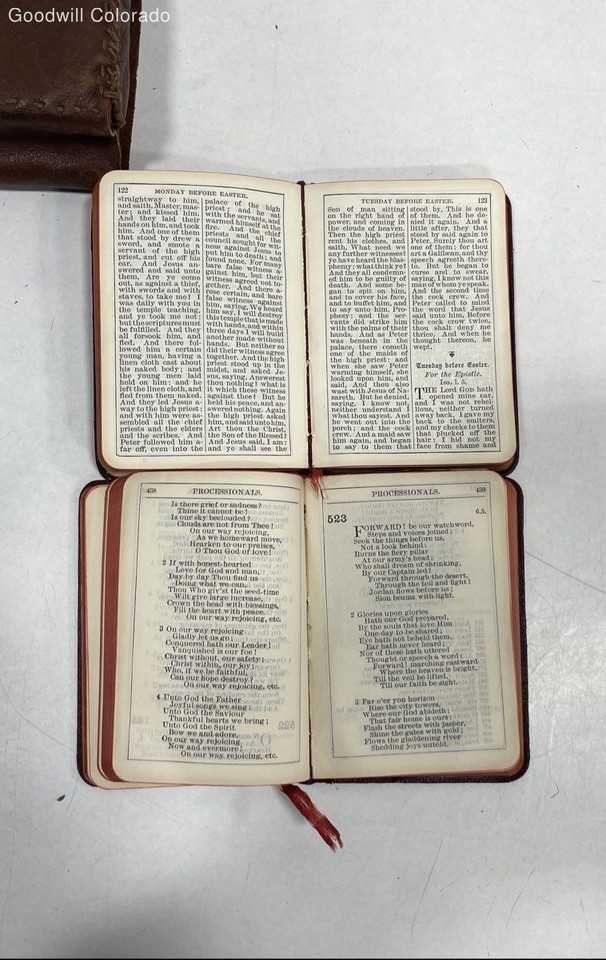 Goodwill Colorado
122 MONDAY BEFORE EASTER.
straightway to him,
and saith, Master, mas-
ter; and kissed him.
And they laid their
hands on him, and took
him. And one of them
that stood by drew a
sword, and smote a
servant of the high
priest, and cut off his
ear. And Jesus an-
swered and said unto
them, Are ye come
out, as against a thief,
with swords and with
staves, to take me? I
was daily with you in
the temple teaching,
and ye took me not:
but the scriptures must
be fulfilled. And they
all forsook him, and
fled. And there fol-
lowed him a certain
young man, having a
linen cloth cast about
his naked body; and
the young men laid
hold on him: and he
left the linen cloth, and
fled from them naked.
And they led Jesus a-
way to the high priest:
and with him were as-
sembled all the chief
priests and the elders
and the scribes. And
Peter followed him a-
far off, even into the
palace of the high
priest: and he sat
with the servants, and
warmed himself at the
fire. And the chief
priests and all the
council sought for wit-
ness against Jesus to
put him to death; and
found none. For many
bare false witness a-
gainst him, but their
witness agreed not to-
gether. And there a-
rose certain, and bare
false witness against
him, saying, We heard
him say, I will destroy
this temple that is made
with hands, and within
three days I will build
another made without
hands. But neither so
did their witness agree
together. And the high
priest stood up in the
midst, and asked Je-
sus, saying, Answerest
thou nothing? what is
it which these witness
against thee? But he
held his peace, and an-
swered nothing. Again
the high priest asked
him, and said unto him,
Art thou the Christ,
the Son of the Blessed?
And Jesus said, I am:
and ye shall see the
TUESDAY BEFORE EASTER. 123
Son of man sitting
on the right hand of
power, and coming in
the clouds of heaven.
Then the high priest
rent his clothes, and
saith, What need we
any further witnesses?
ye have heard the blas-
phemy: what think ye?
And they all condemn-
ed him to be guilty of
death. And some be-
gan to spit on him,
and to cover his face,
and to buffet him, and
to say unto him, Pro-
phesy: and the ser-
vants did strike him
with the palms of their
hands. And as Peter
was beneath in the
palace, there cometh
one of the maids of
the high priest; and
when she saw Peter
warming himself, she
looked upon him, and
said, And thou also
wast with Jesus of Na-
zareth. But he denied,
saying, I know not,
neither understand I
what thou sayest. And
he went out into the
porch; and the cock
crew. And a maid saw
him again, and began
to say to them that
stood by, This is one
of them. And he de-
nied it again. And a
little after, they that
stood by said again to
Peter, Surely thou art
one of them: for thou
art a Galilæan, and thy
speech agreeth there-
to. But he began to
curse and to swear,
saying, I know not this
man of whom ye speak.
And the second time
the cock crew. And
Peter called to mind
the word that Jesus
said unto him, Before
the cock crow twice,
thou shalt deny me
thrice. And when he
thought thereon, he
wept.
Tuesday before Easter.
For the Epistle.
Isa. 1. 5.
THE Lord GOD hath
opened mine ear,
and I was not rebel-
lious, neither turned
away back. I gave my
back to the smiters,
and my cheeks to them
that plucked off the
hair: I hid not my
face from shame and
438 PROCESSIONALS.
Is there grief or sadness?
Thine it cannot be!
Is our sky beclouded?
Clouds are not from Thee!
On our way rejoicing,
As we homeward move,
Hearken to our praises,
O Thou God of love!
2 If with honest-hearted
Love for God and man,
Day by day Thou find us
Doing what we can,
Thou Who giv'st the seed-time
Wilt give large increase,
Crown the head with blessings,
Fill the heart with peace.
On our way rejoicing, etc.
3 On our way rejoicing
Gladly let us go;
Conquered hath our Leader!
Vanquished is our foe!
Christ without, our safety;
Christ within, our joy;
Who, if we be faithful,
Can our hope destroy?
On our way rejoicing, etc.
4 Unto God the Father
Joyful songs we sing;
Unto God the Saviour
Thankful hearts we bring;
Unto God the Spirit
Bow we and adore,
On our way rejoicing
Now and evermore!
On our way rejoicing, etc.
PROCESSIONALS. 439
523 6.5.
FORWARD! be our watchword,
Steps and voices joined;
Seek the things before us,
Not a look behind:
Burns the fiery pillar
At our army's head;
Who shall dream of shrinking,
By our Captain led?
Forward through the desert,
Through the toil and fight!
Jordan flows before us;
Sion beams with light.
2 Glories upon glories
Hath our God prepared,
By the souls that love Him
One day to be shared;
Eye hath not beheld them,
Ear hath never heard;
Nor of these hath uttered
Thought or speech a word:
Forward, marching eastward
Where the heaven is bright,
Till the veil be lifted,
Till our faith be sight.
3 Far o'er yon horizon
Rise the city towers,
Where our God abideth;
That fair home is ours:
Flash the streets with jasper,
Shine the gates with gold;
Flows the gladdening river
Shedding joys untold.